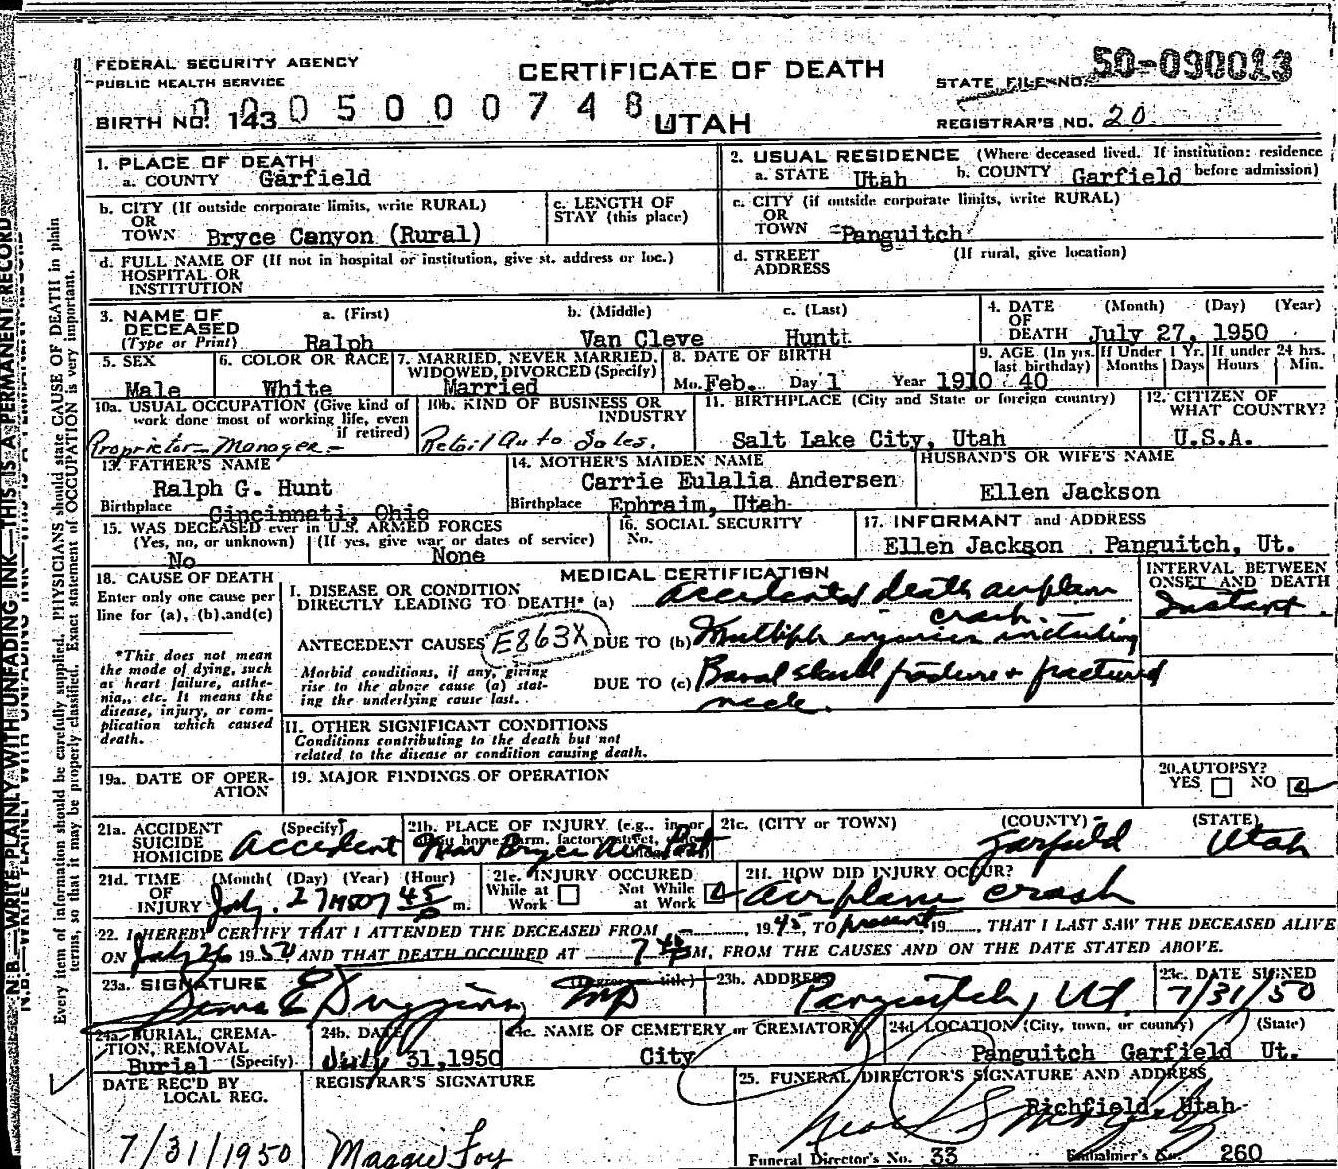 FEDERAL SECURITY AGENCY
PUBLIC HEALTH SERVICE
CERTIFICATE OF DEATH
STATE FILE NO. 50-090013
BIRTH NO. 143 0005000748
UTAH
REGISTRAR'S NO. 20
1. PLACE OF DEATH
a. COUNTY Garfield
2. USUAL RESIDENCE (Where deceased lived. If institution: residence before admission)
a. STATE Utah b. COUNTY Garfield
b. CITY (If outside corporate limits, write RURAL)
OR
TOWN Bryce Canyon (Rural)
c. LENGTH OF
STAY (this place)
c. CITY (if outside corporate limits, write RURAL)
OR
TOWN Panguitch
d. FULL NAME OF (If not in hospital or institution, give st. address or loc.)
HOSPITAL OR
INSTITUTION
d. STREET (If rural, give location)
ADDRESS
3. NAME OF a. (First) b. (Middle) c. (Last)
DECEASED
(Type or Print) Ralph Van Cleve Hunt
4. DATE (Month) (Day) (Year)
OF
DEATH July 27, 1950
5. SEX
Male
6. COLOR OR RACE
White
7. MARRIED, NEVER MARRIED,
WIDOWED, DIVORCED (Specify)
Married
8. DATE OF BIRTH
Mo. Feb. Day 1 Year 1910
9. AGE (In yrs. last birthday) If Under 1 Yr. If under 24 hrs.
Months Days Hours Min.
40
10a. USUAL OCCUPATION (Give kind of
work done most of working life, even
if retired)
Proprietor-Manager-
10b. KIND OF BUSINESS OR
INDUSTRY
Retail Auto Sales.
11. BIRTHPLACE (City and State or foreign country)
Salt Lake City, Utah
12. CITIZEN OF
WHAT COUNTRY?
U.S.A.
13. FATHER'S NAME
Ralph G. Hunt
Birthplace Cincinnati, Ohio
14. MOTHER'S MAIDEN NAME
Carrie Eulalia Andersen
Birthplace Ephraim, Utah
HUSBAND'S OR WIFE'S NAME
Ellen Jackson
15. WAS DECEASED ever in U.S. ARMED FORCES
(Yes, no, or unknown) (If yes, give war or dates of service)
No None
16. SOCIAL SECURITY
No.
17. INFORMANT and ADDRESS
Ellen Jackson Panguitch, Ut.
18. CAUSE OF DEATH
Enter only one cause per
line for (a), (b), and (c)
*This does not mean
the mode of dying, such
as heart failure, asthe-
nia, etc. It means the
disease, injury, or com-
plication which caused
death.
MEDICAL CERTIFICATION
I. DISEASE OR CONDITION
DIRECTLY LEADING TO DEATH* (a) accidental death airplane
crash.
INTERVAL BETWEEN
ONSET AND DEATH
Instant.
ANTECEDENT CAUSES E863X DUE TO (b) Multiple injuries including
Morbid conditions, if any, giving
rise to the above cause (a) stat-
ing the underlying cause last.
DUE TO (c) Basal skull fracture + fractured
neck.
II. OTHER SIGNIFICANT CONDITIONS
Conditions contributing to the death but not
related to the disease or condition causing death.
19a. DATE OF OPER-
ATION
19. MAJOR FINDINGS OF OPERATION
20. AUTOPSY?
YES NO
21a. ACCIDENT (Specify)
SUICIDE
HOMICIDE Accident
21b. PLACE OF INJURY (e.g., in or
Near Bryce Air Port
21c. (CITY or TOWN) (COUNTY) (STATE)
Garfield Utah
21d. TIME (Month) (Day) (Year) (Hour)
OF
INJURY July 27 1950 7 45 P m.
21e. INJURY OCCURED
While at Work Not While at Work
21f. HOW DID INJURY OCCUR?
airplane crash
22. I HEREBY CERTIFY THAT I ATTENDED THE DECEASED FROM 1945, TO present, 19, THAT I LAST SAW THE DECEASED ALIVE
ON July 26 1950 AND THAT DEATH OCCURED AT 7 45 P M, FROM THE CAUSES AND ON THE DATE STATED ABOVE.
23a. SIGNATURE
Duggins MD
23b. ADDRESS
Panguitch, Ut.
23c. DATE SIGNED
7/31/50
24a. BURIAL, CREMA-
TION, REMOVAL
Burial (Specify)
24b. DATE
July 31, 1950
24c. NAME OF CEMETERY or CREMATORY
City
24d. LOCATION (City, town, or county) (State)
Panguitch Garfield Ut.
DATE REC'D BY
LOCAL REG.
7/31/1950
REGISTRAR'S SIGNATURE
Maggie Foy
25. FUNERAL DIRECTOR'S SIGNATURE AND ADDRESS
Richfield, Utah
Funeral Director's No. 33 Embalmer's No. 260
N.B.—WRITE PLAINLY WITH UNFADING INK—THIS IS A PERMANENT RECORD
Every item of information should be carefully supplied. PHYSICIANS should state CAUSE OF DEATH in plain
terms, so that it may be properly classified. Exact statement of OCCUPATION is very important.